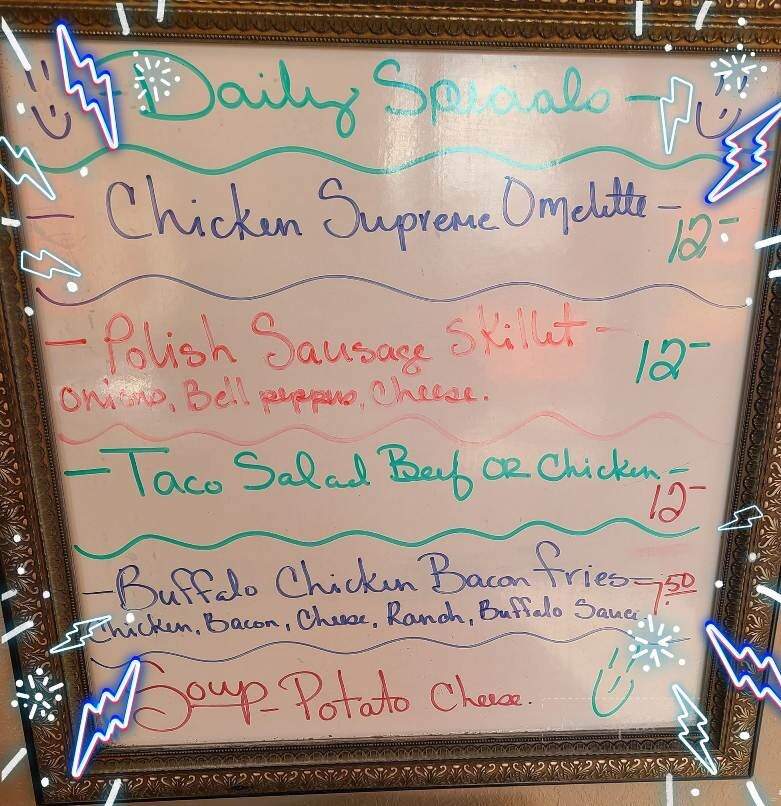 Daily Specials -
- Chicken Supreme Omelette -
12-
- Polish Sausage Skillet -
12-
onions, Bell peppers, Cheese.
- Taco Salad Beef OR Chicken -
12-
- Buffalo Chicken Bacon fries - 7.50
Chicken, Bacon, Cheese, Ranch, Buffalo Sauce
Soup - Potato Cheese.